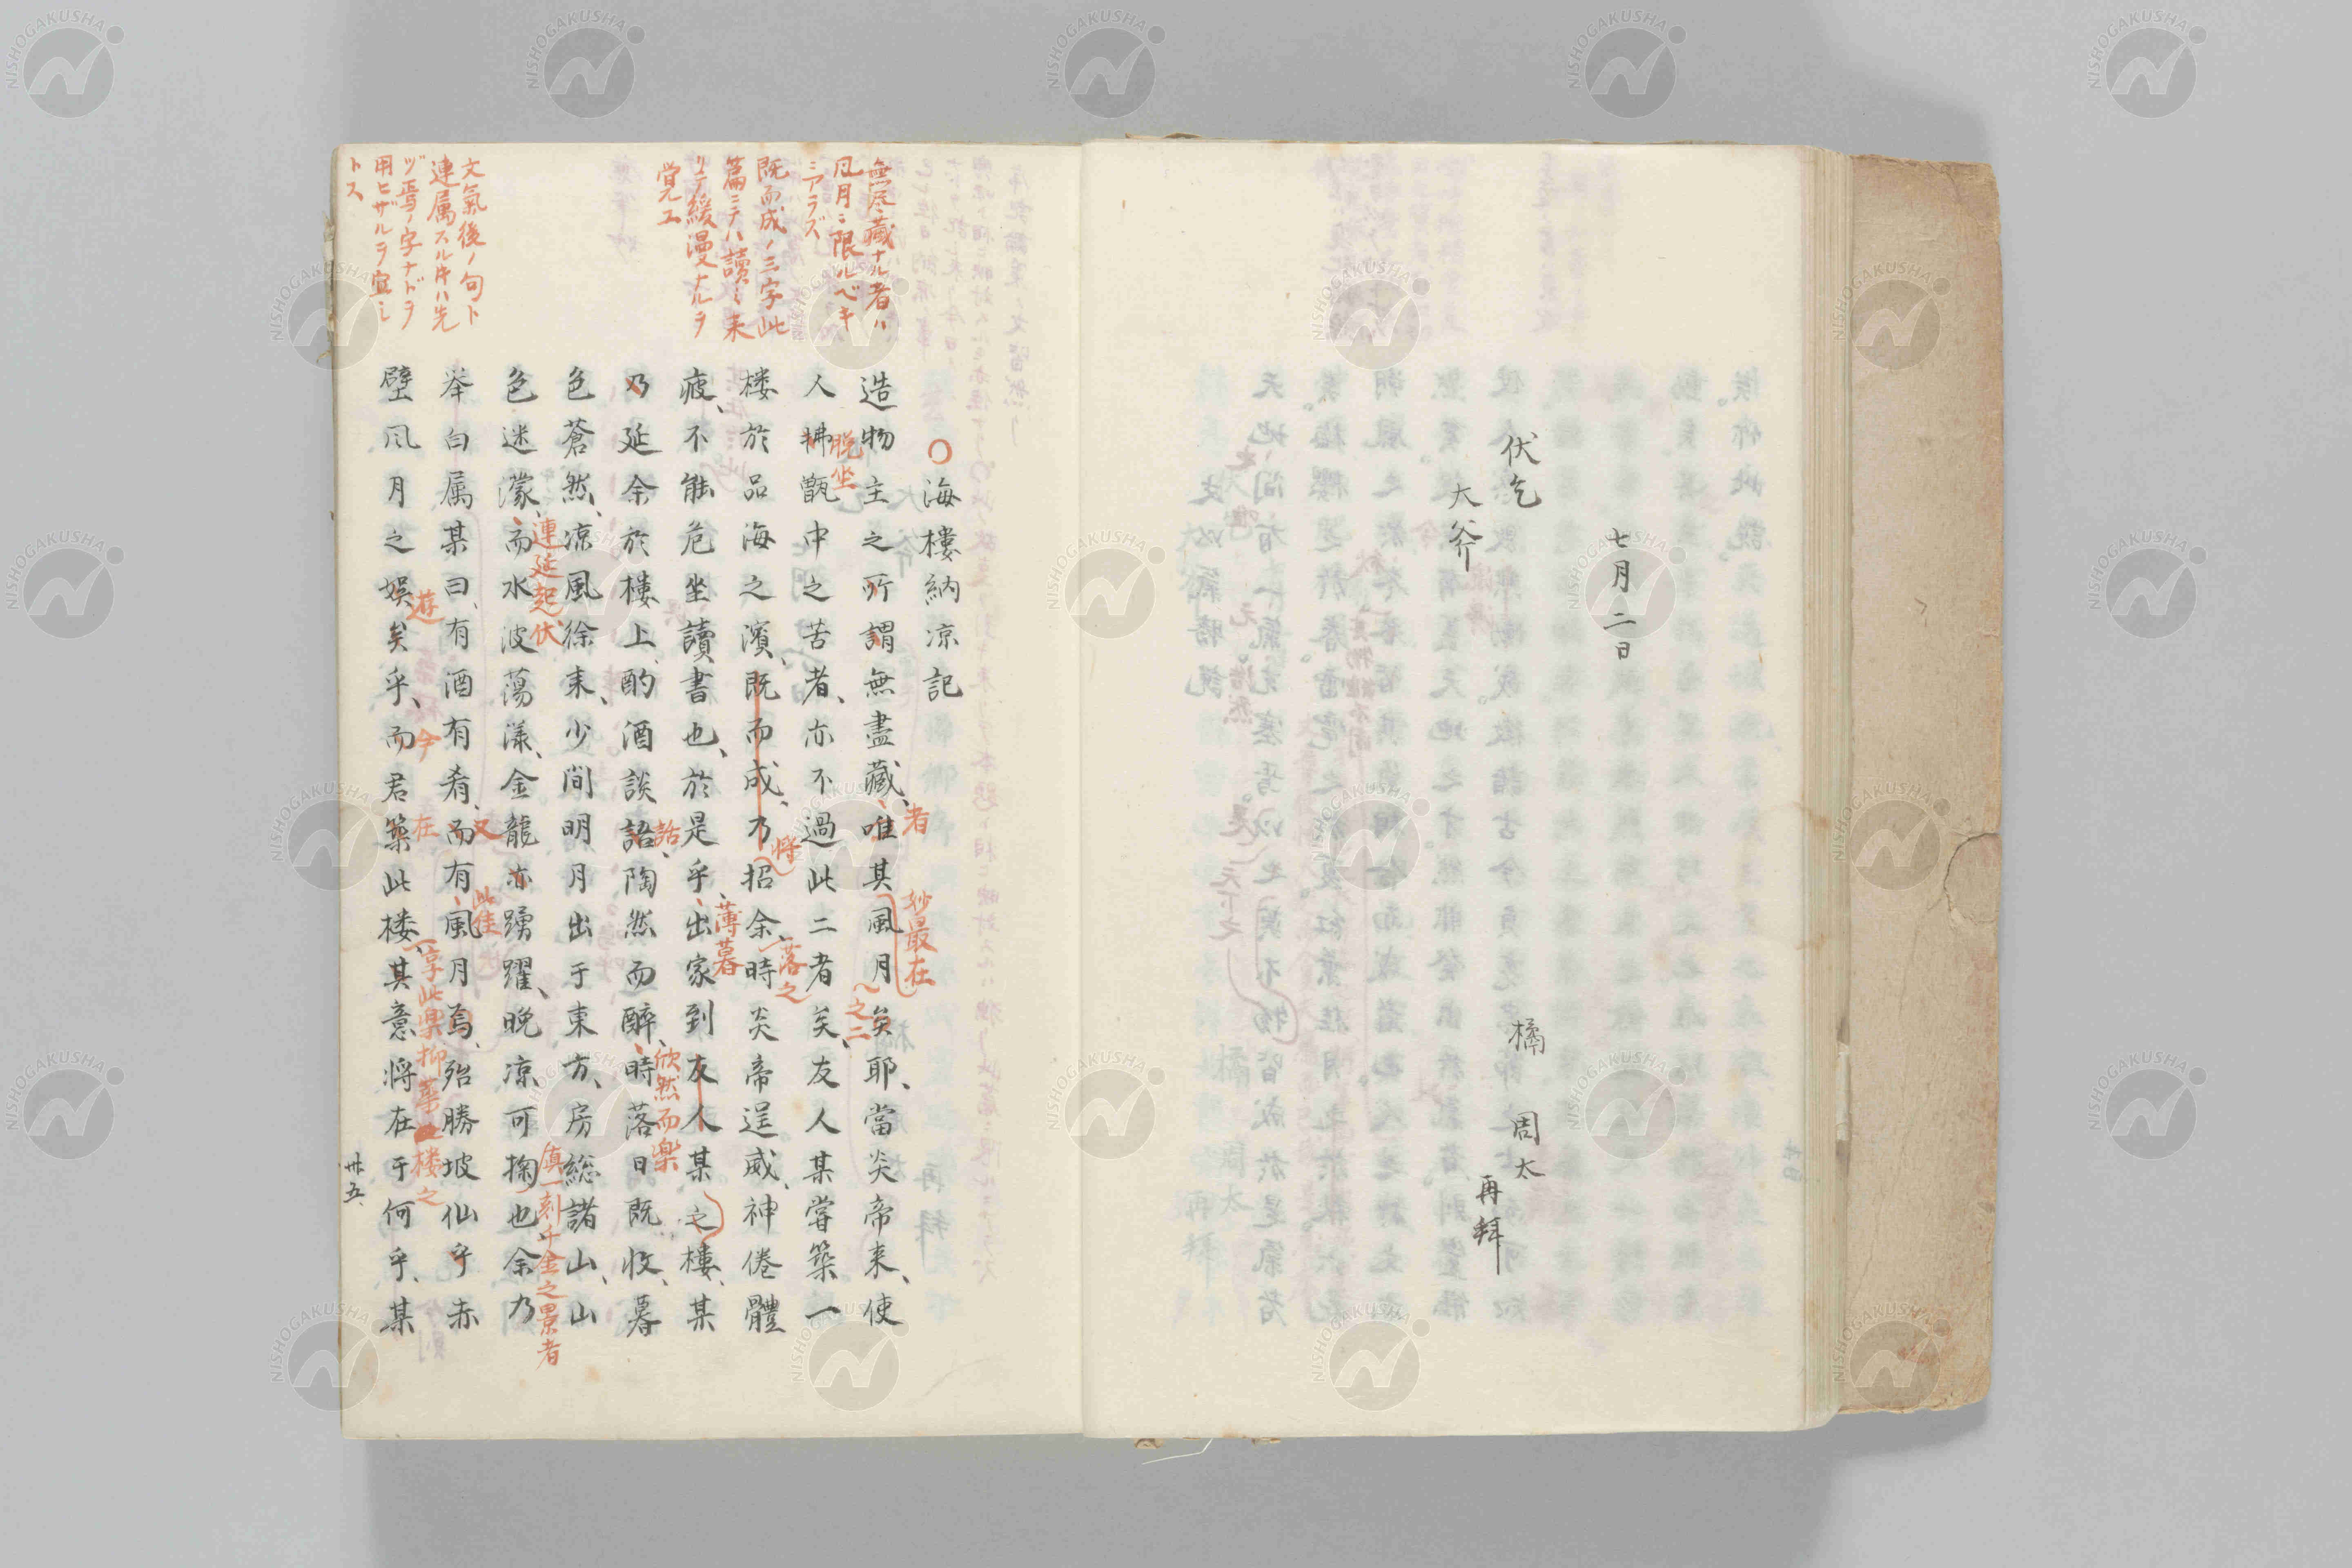 七月二日
橘 周太
再拜
伏乞
大斧
○海樓納凉記
造物主之所謂無盡藏、唯其風月矣耶、當炎帝来、使
者
妙最在
之二
人拂甑中之苦者、亦不過此二者矣、友人某嘗築一
脱坐
楼於品海之濱、既而成、乃招余、時炎帝逞威、神倦體
将
落之
疲、不能危坐讀書也、於是乎、出家到友人某之樓、某
薄暮
乃延余於樓上、酌酒談語、陶然而醉、時落日既收、暮
話
欣然而楽
色蒼然、凉風徐来、少間明月出于東方、房総諸山、山
色迷濛、而水波蕩漾、金龍亦踴躍、晩凉可掬也余乃
連延起伏
真一刻千金之景者
举白属某曰、有酒有肴、而有風月焉、殆勝坡仙乎赤
又
此佳
壁風月之娯矣乎、而君築此楼、其意将在于何乎、某
遊
今
在
享此楽抑築此楼之
無尽藏ナル者ハ
凨月ニ限ルベキ
ニアラズ
既而成ノ三字此
篇ニテハ讀ミ来
リテ緩漫ナルヲ
覚ユ
文氣後ノ句ト
連属スル時ハ先
ヅ焉ノ字ナドヲ
用ヒザルヲ宜シ
トス
卅五
NISHOGAKUSHA